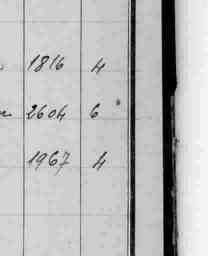 1816 4
2604 6
1967 4